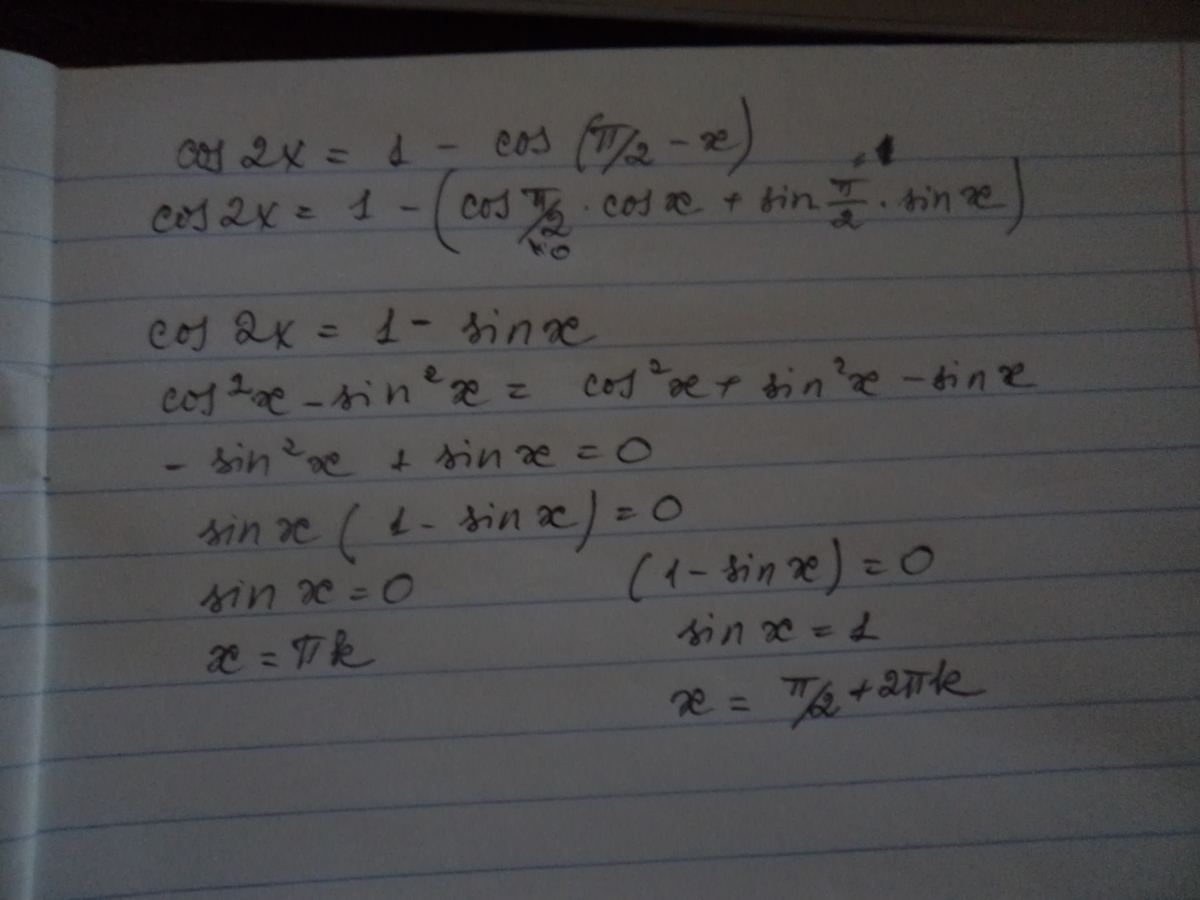 cos 2x = 1 - cos (π/2 - x)
cos 2x = 1 - (cos π/2 · cos x + sin π/2 · sin x)
=0 =1
cos 2x = 1 - sin x
cos²x - sin²x = cos²x + sin²x - sin x
- sin²x + sin x = 0
sin x ( 1 - sin x ) = 0
sin x = 0 (1 - sin x) = 0
x = πk sin x = 1
x = π/2 + 2πk